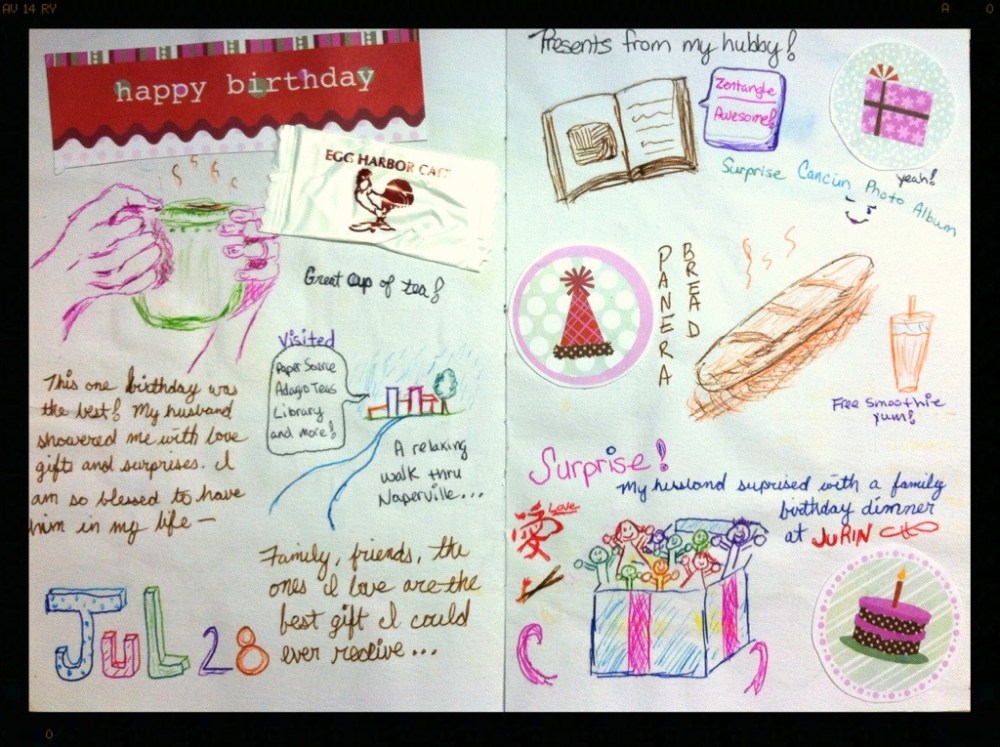 AV 14 RY
A
0
happy birthday
EGG HARBOR CAFE
Great cup of tea!
Visited
Paper Source
Adagio Teas
Library
and more!
This one birthday was
the best! My husband
showered me with love
gifts and surprises. I
am so blessed to have
him in my life —
A relaxing
walk thru
Naperville...
Family, friends, the
ones I love are the
best gift I could
ever receive...
JUL 28
Presents from my hubby!
Zentangle
Awesome!
Surprise Cancun Photo Album
yeah!
PANERA
BREAD
Free Smoothie
yum!
Surprise!
My husland suprised with a family
birthday dinner
at JURIN CHO
愛
Love
0